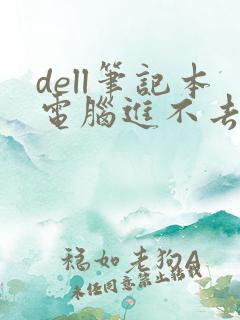 dell筆記本
電腦進不去
福如老狗A
未任同意禁止轉載